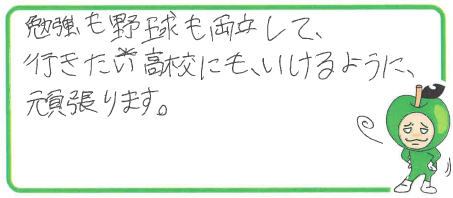 勉強も野球も両立して、
行きたい高校にも、いけるように、
頑張ります。